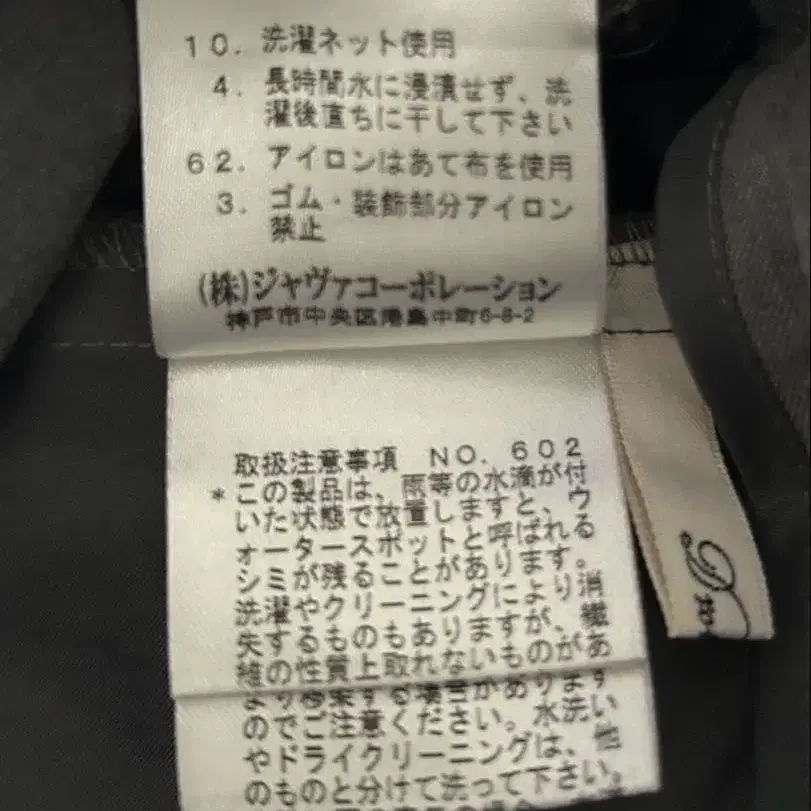 10. 洗濯ネット使用
4. 長時間水に浸漬せず、洗
濯後直ちに干して下さい
62. アイロンはあて布を使用
3. ゴム・装飾部分アイロン
禁止
(株)ジャヴァコーポレーション
神戸市中央区港島中町6-8-2
取扱注意事項 NO. 602
*この製品は、雨等の水滴が付
いた状態で放置しますと、ウ
ォータースポットと呼ばれる
シミが残ることがあります。
洗濯やクリーニングにより消
失するものもありますが、繊
維の性質上取れないものがあ
のでご注意ください。水洗い
やドライクリーニングは、他
のものと分けて洗って下さい。